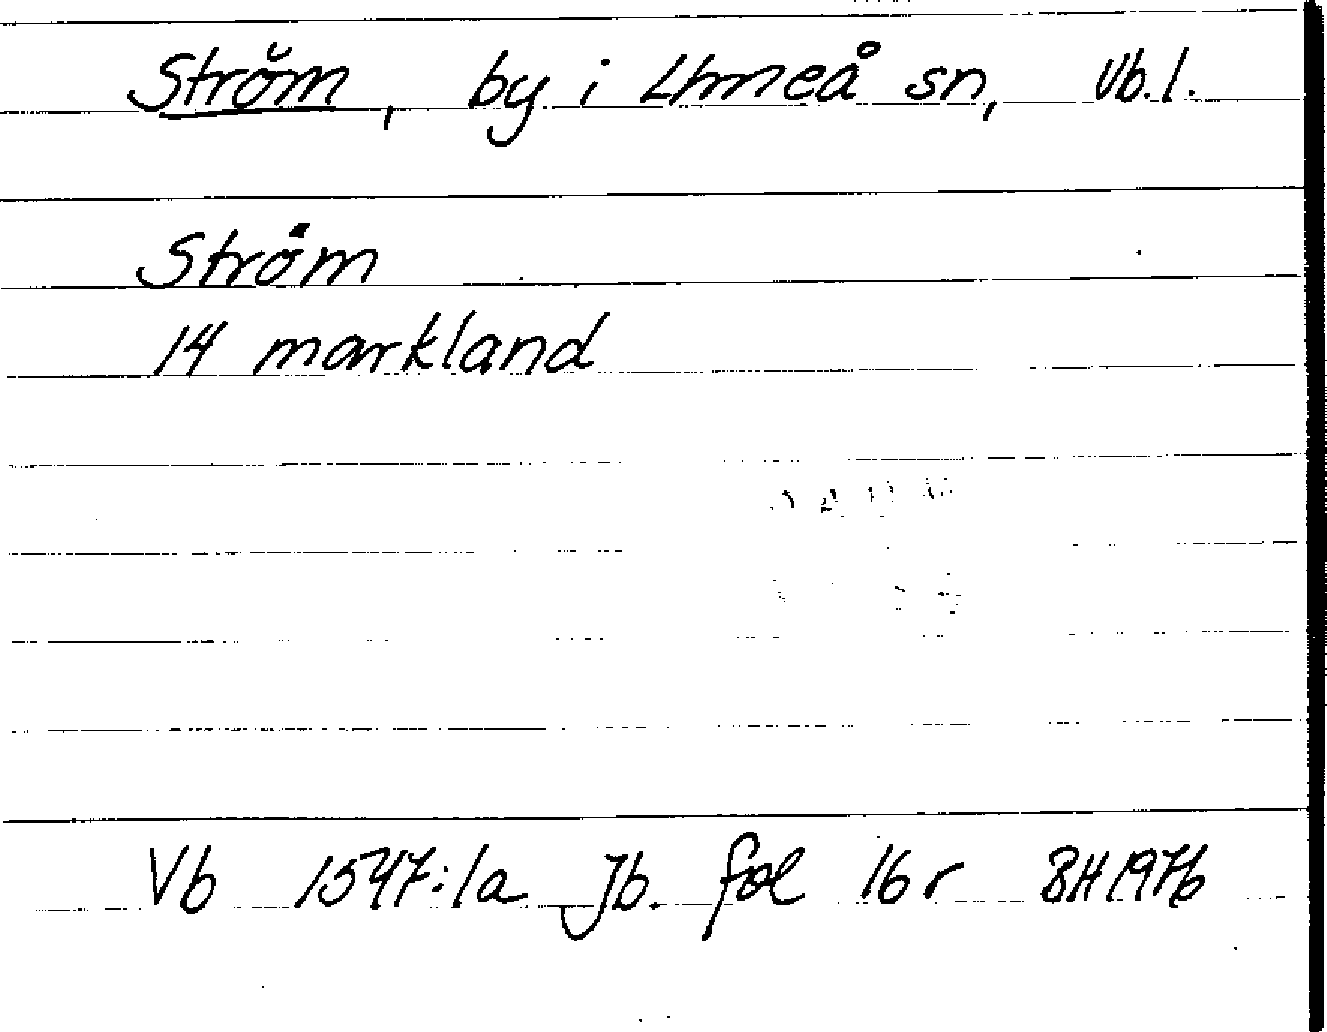 Ström, by i Umeå sn, Vb.l.
Ström
14 markland
Vb 1547:1a Jb. fol 16 r BH 1976